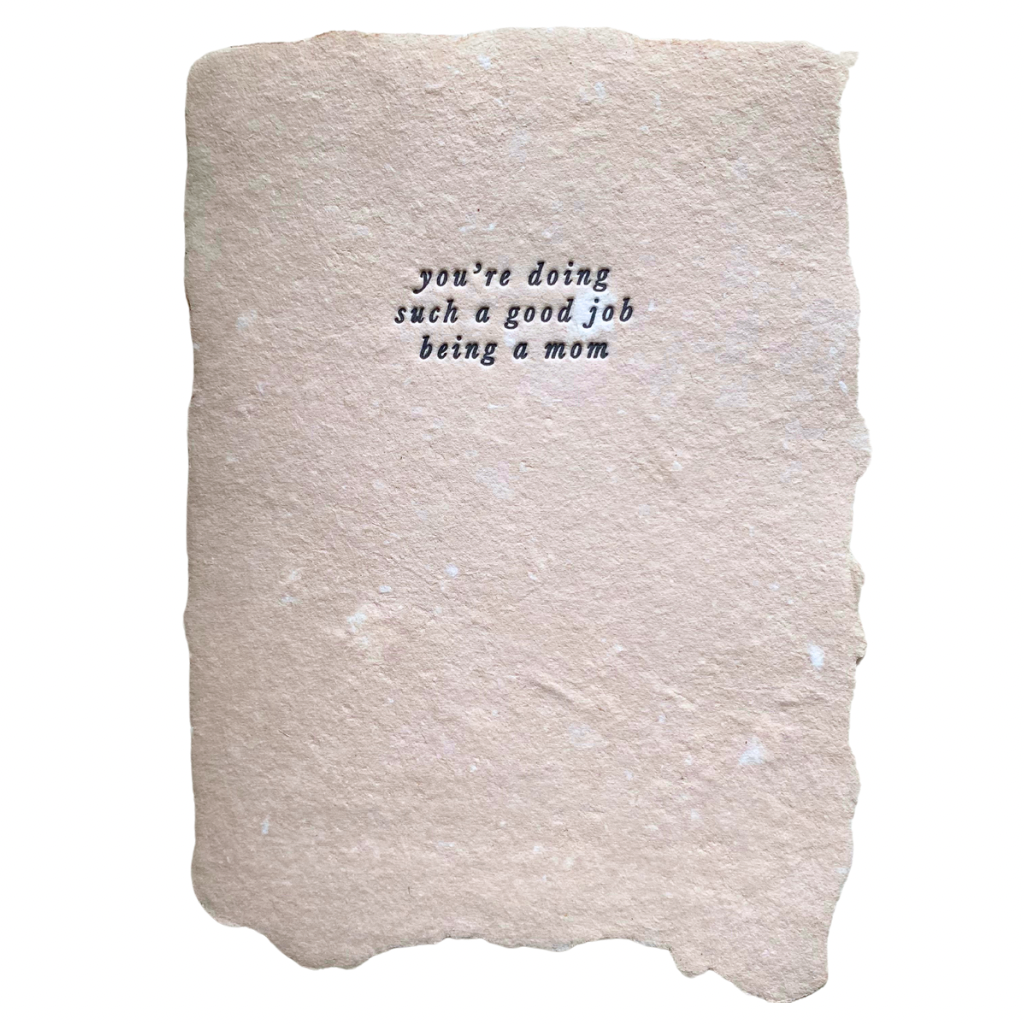 you’re doing
such a good job
being a mom